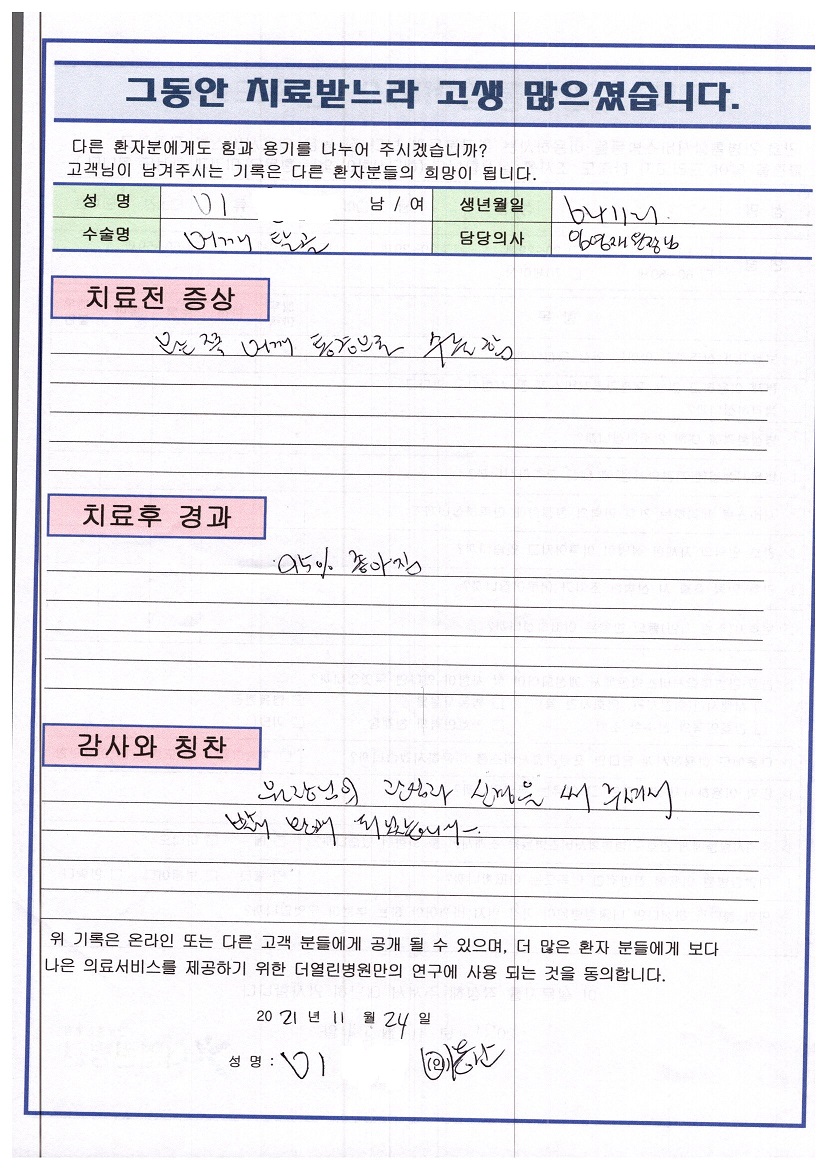 그동안 치료받느라 고생 많으셨습니다.
다른 환자분에게도 힘과 용기를 나누어 주시겠습니까?
고객님이 남겨주시는 기록은 다른 환자분들의 희망이 됩니다.
성 명 이 남 / 여 생년월일 641121.
수술명 어깨 탈골 담당의사 임영재 원장님
치료전 증상
오른쪽 어깨 통증으로 수술함
치료후 경과
95% 좋아짐
감사와 칭찬
원장님의 관심과 신경을 써 주셔서
빨리 되었습니다.
위 기록은 온라인 또는 다른 고객 분들에게 공개 될 수 있으며, 더 많은 환자 분들에게 보다
나은 의료서비스를 제공하기 위한 더열린병원만의 연구에 사용 되는 것을 동의합니다.
20 21 년 11 월 24 일
성 명 : 이 (인)